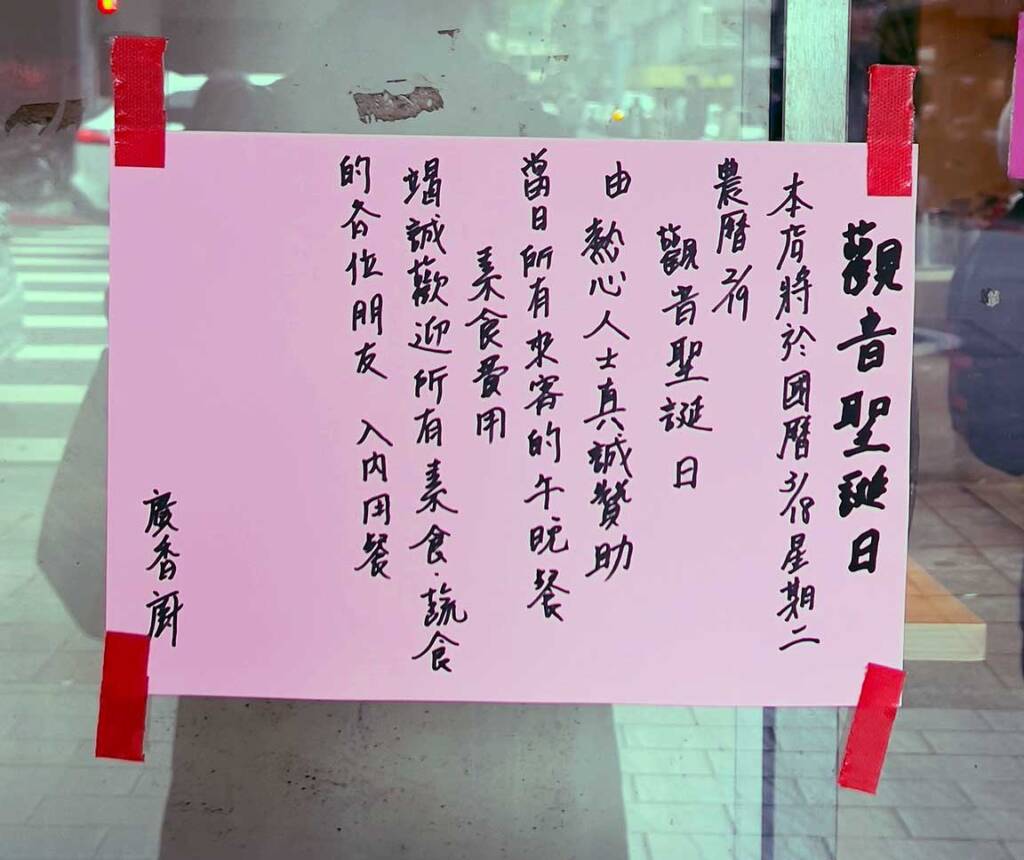 觀音聖誕日
本店將於國曆3/18星期二
農曆2/19
觀音聖誕日
由熱心人士真誠贊助
當日所有來客的午晚餐
素食費用
竭誠歡迎所有素食.蔬食
的各位朋友 入內用餐
廣香廚